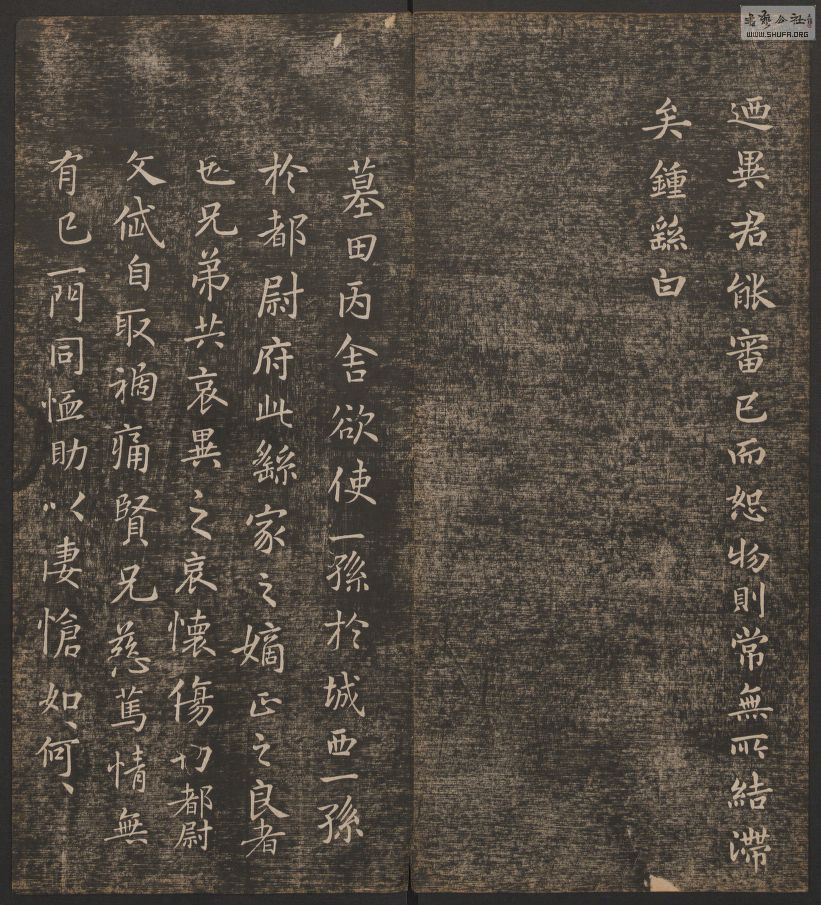 迺異君能審已而恕物則常無所結滯
矣鍾繇白
墓田丙舍欲使一孫於城西一孫
於都尉府此繇家之嫡正之良者
也兄弟共哀異之哀懷傷切都尉
文岱自取禍痛賢兄慈篤情無
有已一門同恤助以悽愴如何
WWW.SHUFA.ORG